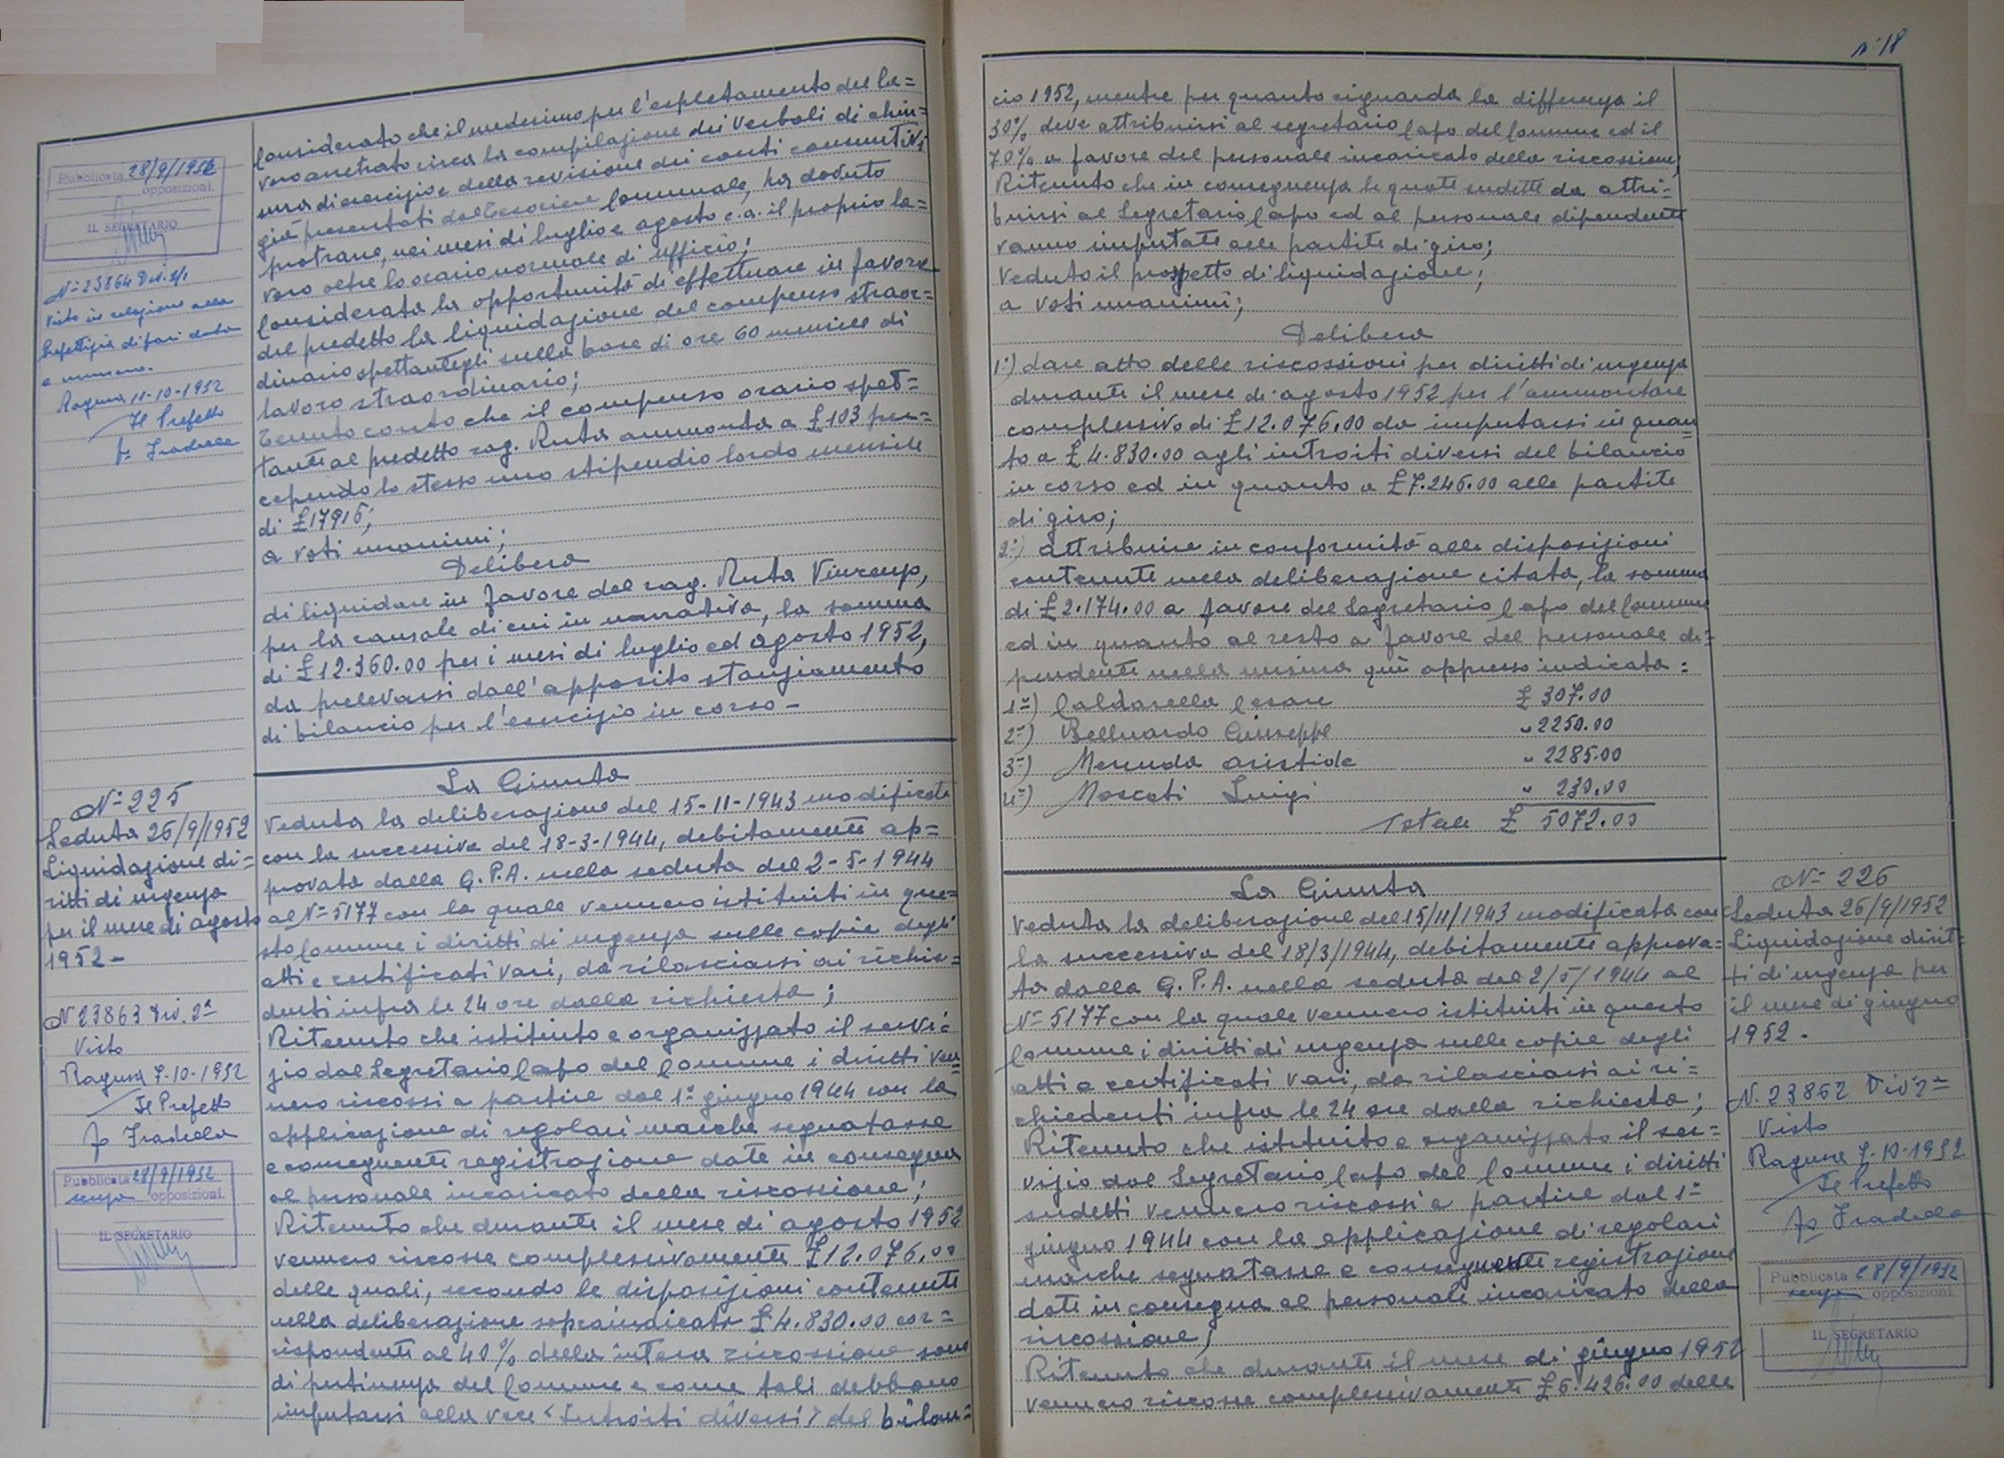 Pubblicata 28/9/1952
opposizioni.
IL SEGRETARIO
N= 23864 Div. 2/1
Visto in relazione alla
Prefettizia di pari data
e numero.
Ragusa 11-10-1952
Il Prefetto
Considerato che il medesimo per l'espletamento del la=
voro arretrato circa la compilazione dei verbali di chiu=
sura di esercizio e della revisione dei conti consuntivi
già presentati dal Tesoriere Comunale, ha dovuto
protrarre, nei mesi di luglio e agosto c.a. il proprio la=
voro oltre lo orario normale di ufficio;
Considerata la opportunità di effettuare in favore
del predetto la liquidazione del compenso straor=
dinario spettantegli sulla base di ore 60 mensili di
lavoro straordinario;
Tenuto conto che il compenso orario spet=
tante al predetto rag. Ruta ammonta a £ 103 per=
cependo lo stesso uno stipendio lordo mensile
di £17915;
a voti unanimi;
Delibera
di liquidare in favore del rag. Ruta Vincenzo,
per la causale di cui in narrativa, la somma
di £12.360.00 per i mesi di luglio ed agosto 1952,
da prelevarsi dall'apposito stanziamento
di bilancio per l'esercizio in corso -
N= 225
Seduta 26/9/1952
Liquidazione di=
ritti di urgenza
per il mese di agosto
1952 -
N 23863 Div. 2ª
Visto
Ragusa 7-10-1952
Il Prefetto
Pubblicata 28/9/1952
senza opposizioni.
IL SEGRETARIO
La Giunta
Veduta la deliberazione del 15-11-1943 modificata
con la successiva del 18-3-1944, debitamente ap=
provata dalla G.P.A. nella seduta del 2-5-1944
al N= 5177 con la quale vennero istituiti in que=
sto Comune i diritti di urgenza sulle copie degli
atti e certificati vari, da rilasciarsi ai richie=
denti infra le 24 ore dalla richiesta;
Ritenuto che istituito e organizzato il servi=
zio dal Segretario Capo del Comune i diritti ven=
nero riscossi a partire dal 1° giugno 1944 con la
applicazione di regolari marche segnatasse
e conseguente registrazione date in consegna
al personale incaricato della riscossione;
Ritenuto che durante il mese di agosto 1952
vennero riscosse complessivamente £12.076.00
delle quali, secondo le disposizioni contenute
nella deliberazione sopraindicata £4.830.00 cor=
rispondenti al 40% della intera riscossione sono
di pertinenza del Comune e come tali debbono
imputarsi alla voce "Introiti diversi" del bilan=
n° 18
cio 1952, mentre per quanto riguarda la differenza il
30% deve attribuirsi al segretario Capo del Comune ed il
70% a favore del personale incaricato della riscossione;
Ritenuto che in conseguenza le quote sudette da attri=
buirsi al Segretario Capo ed al personale dipendente
vanno imputate alle partite di giro;
Veduto il prospetto di liquidazione;
a voti unanimi;
Delibera
1°) dare atto delle riscossioni per diritti di urgenza
durante il mese di agosto 1952 per l'ammontare
complessivo di £12.076.00 da imputarsi in quan=
to a £4.830.00 agli introiti diversi del bilancio
in corso ed in quanto a £7.246.00 alle partite
di giro;
2°) attribuire in conformità alle disposizioni
contenute nella deliberazione citata, la somma
di £2.174.00 a favore del Segretario Capo del Comune
ed in quanto al resto a favore del personale di=
pendente nella misura qui appresso indicata:
1°) Caldarella Cesare £ 307.00
2°) Belluardo Giuseppe " 2250.00
3°) Merenda Aristide " 2285.00
4°) Moscati Luigi " 230.00
Totale £ 5072.00
La Giunta
Veduta la deliberazione del 15/11/1943 modificata con
la successiva del 18/3/1944, debitamente approva=
ta dalla G.P.A. nella seduta del 2/5/1944 al
N= 5177 con la quale vennero istituiti in questo
Comune i diritti di urgenza sulle copie degli
atti e certificati vari, da rilasciarsi ai ri=
chiedenti infra le 24 ore dalla richiesta;
Ritenuto che istituito e organizzato il ser=
vizio dal Segretario Capo del Comune i diritti
sudetti vennero riscossi a partire dal 1°
giugno 1944 con la applicazione di regolari
marche segnatasse e conseguente registrazione
date in consegna al personale incaricato della
riscossione;
Ritenuto che durante il mese di giugno 1952
vennero riscosse complessivamente £6.426.00 delle
N= 226
Seduta 26/9/1952
Liquidazione dirit=
ti di urgenza per
il mese di giugno
1952.
N. 23862 Div 2ª
Visto
Ragusa 7-10-1952
Il Prefetto
Pubblicata 28/9/1952
senza opposizioni.
IL SEGRETARIO